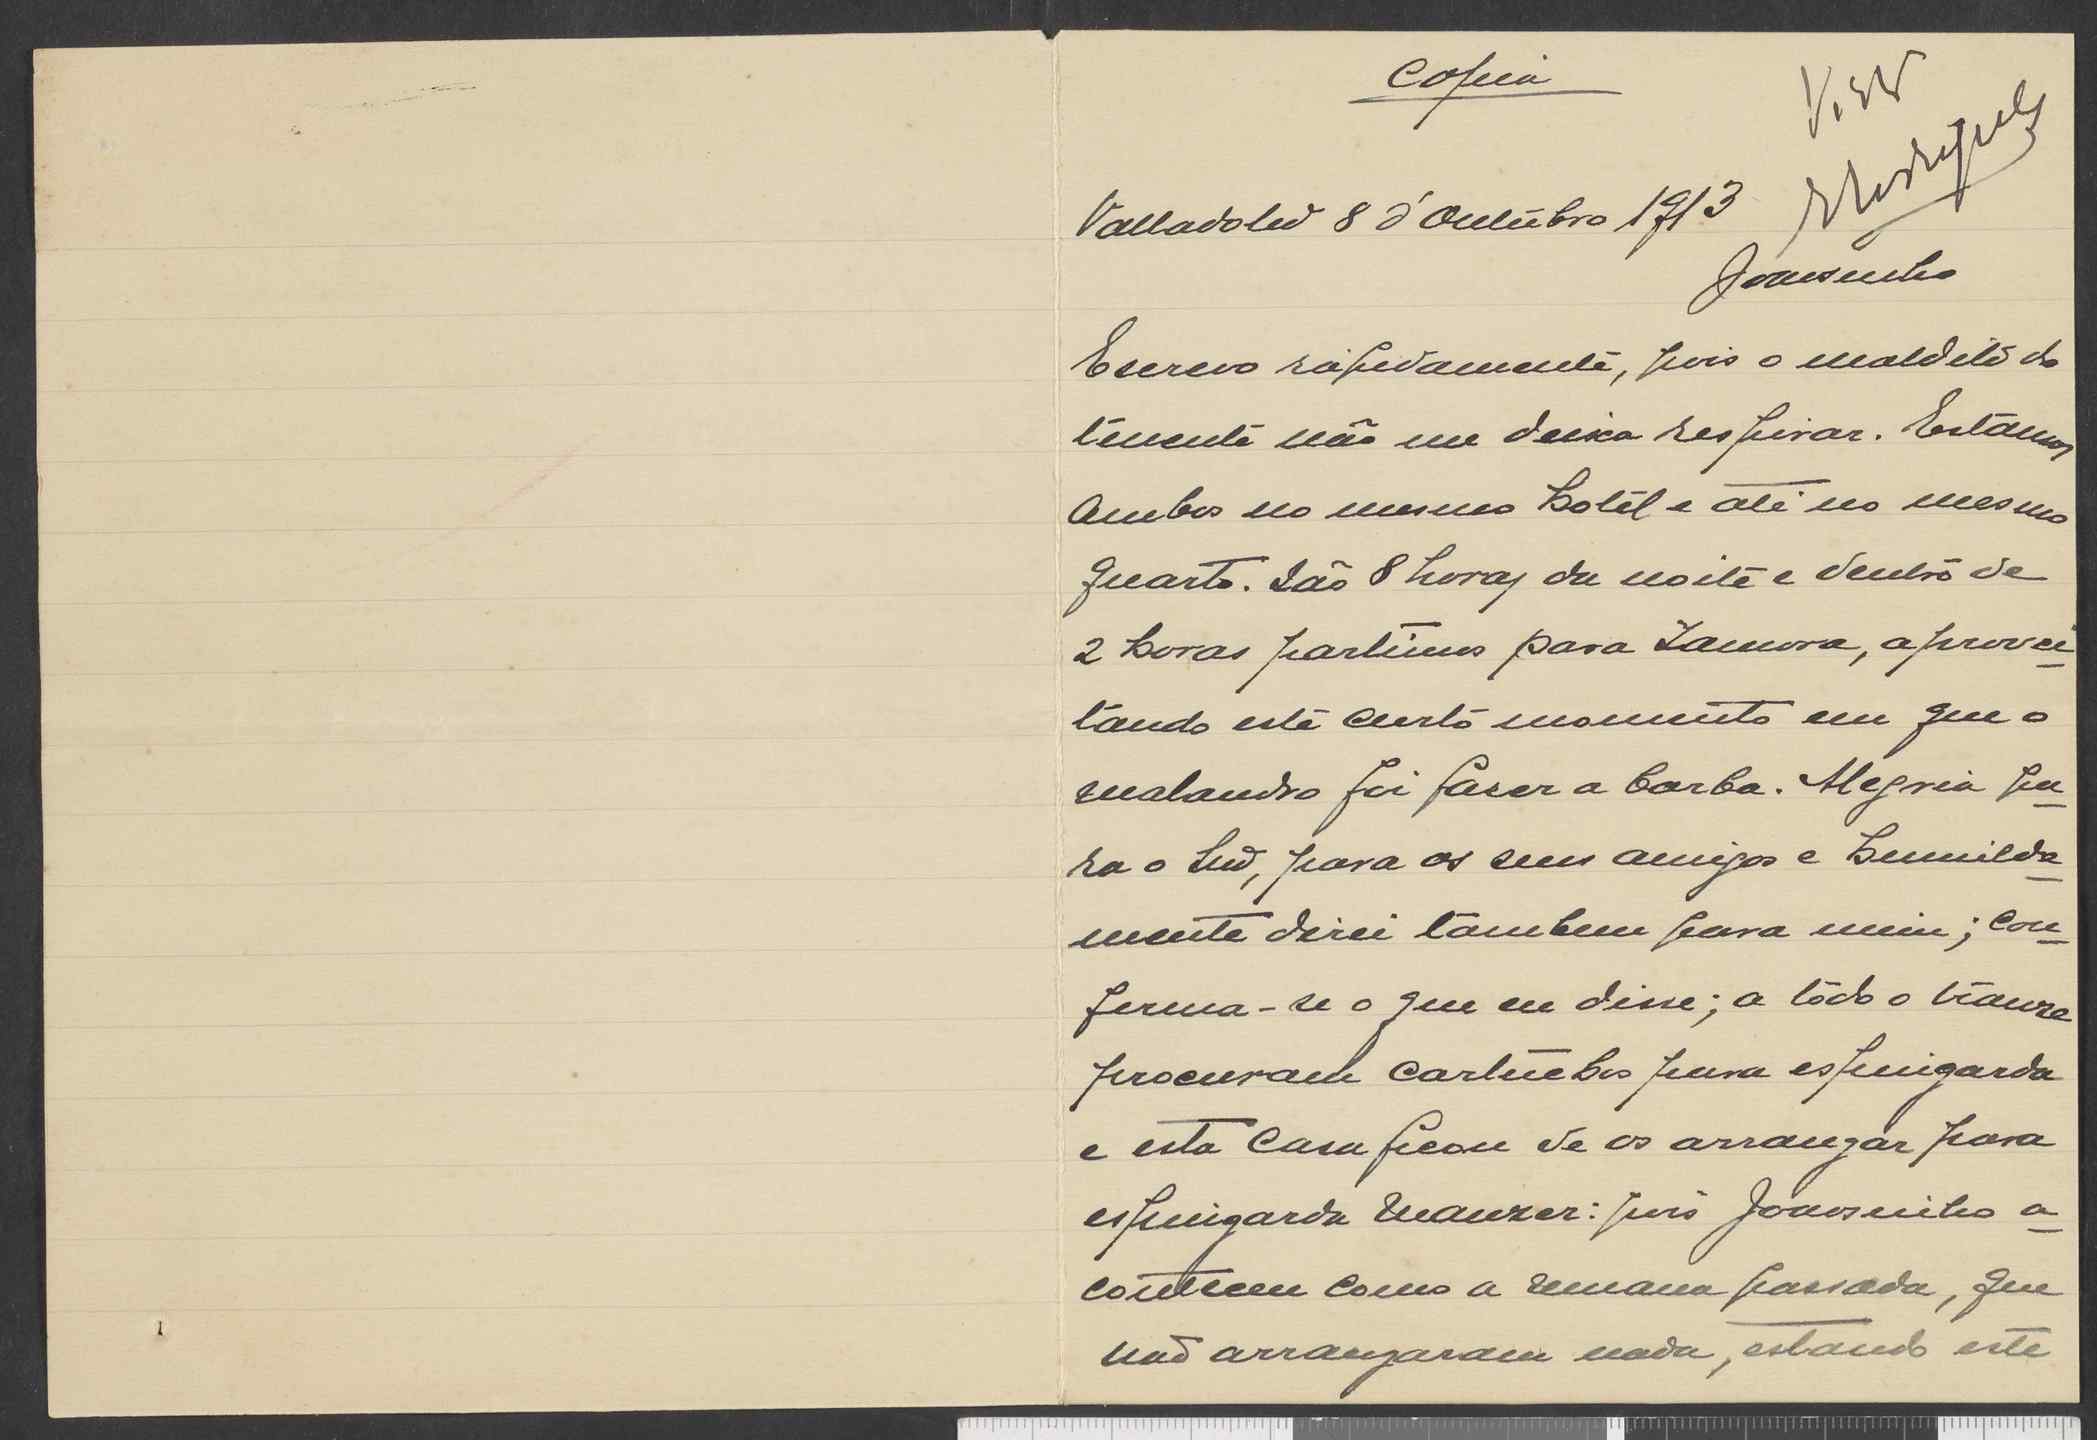 Copia
Visto
Rodrigues
Valladolid 8 d'Outubro 1913
Joaosinho
Escrevo rapidamente, pois o maldito do
tenente não me deixa respirar. Estamos
ambos no mesmo hotel e até no mesmo
quarto. São 8 horas da noite e dentro de
2 horas partimos para Zamora, aprovei-
tando este curto momento em que o
malandro foi fazer a barba. Alegria pa-
ra o Sud, para os seus amigos e humilda-
mente direi tambem para mim; con-
firma-se o que eu disse; a todo o tranze
procuram cartuchos para espingarda
e esta casa ficou de os arranjar para
espingarda Mauzer: pois Joaosinho a-
contecem como a semana passada, que
não arranjaram nada, estando este